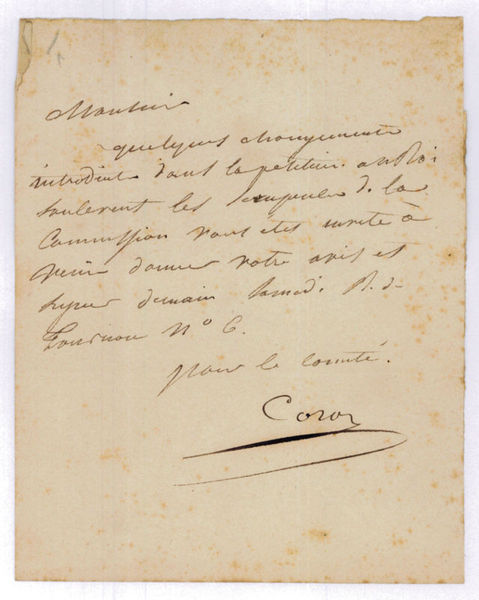 Monsieur
quelques changements
introduits dans la petition au Roi
soulevent les scrupules de la
Commission vous etes invité à
venir donner votre avis et
signer demain Samedi. R. de
Tournon N° 6.
pour le comité.
Corot